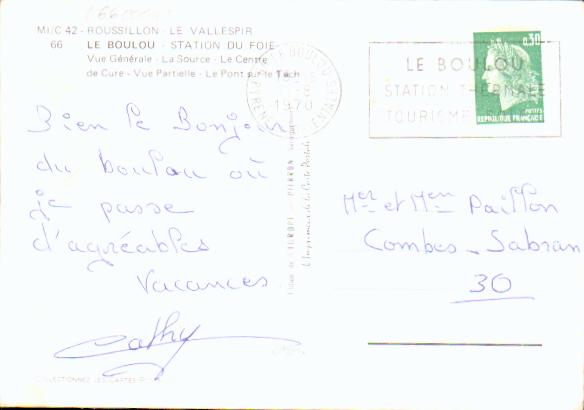 MI/C 42 - ROUSSILLON - LE VALLESPIR
66 LE BOULOU - STATION DU FOIE
Vue Générale - La Source - Le Centre
de Cure - Vue Partielle - Le Pont sur le Tech
LE BOULOU
1970
PYRENEES ORIENTALES
LE BOULOU
STATION THERMALE
TOURISME
0,30
REPUBLIQUE FRANÇAISE
Bien le Bonjour
du boulou où
je passe
d'agréables
vacances
Cathy
Mer et Mem Paillon
Combes - Sabran
30
L'EUROPE - PIERRON
COLLECTIONNEZ LES CARTES